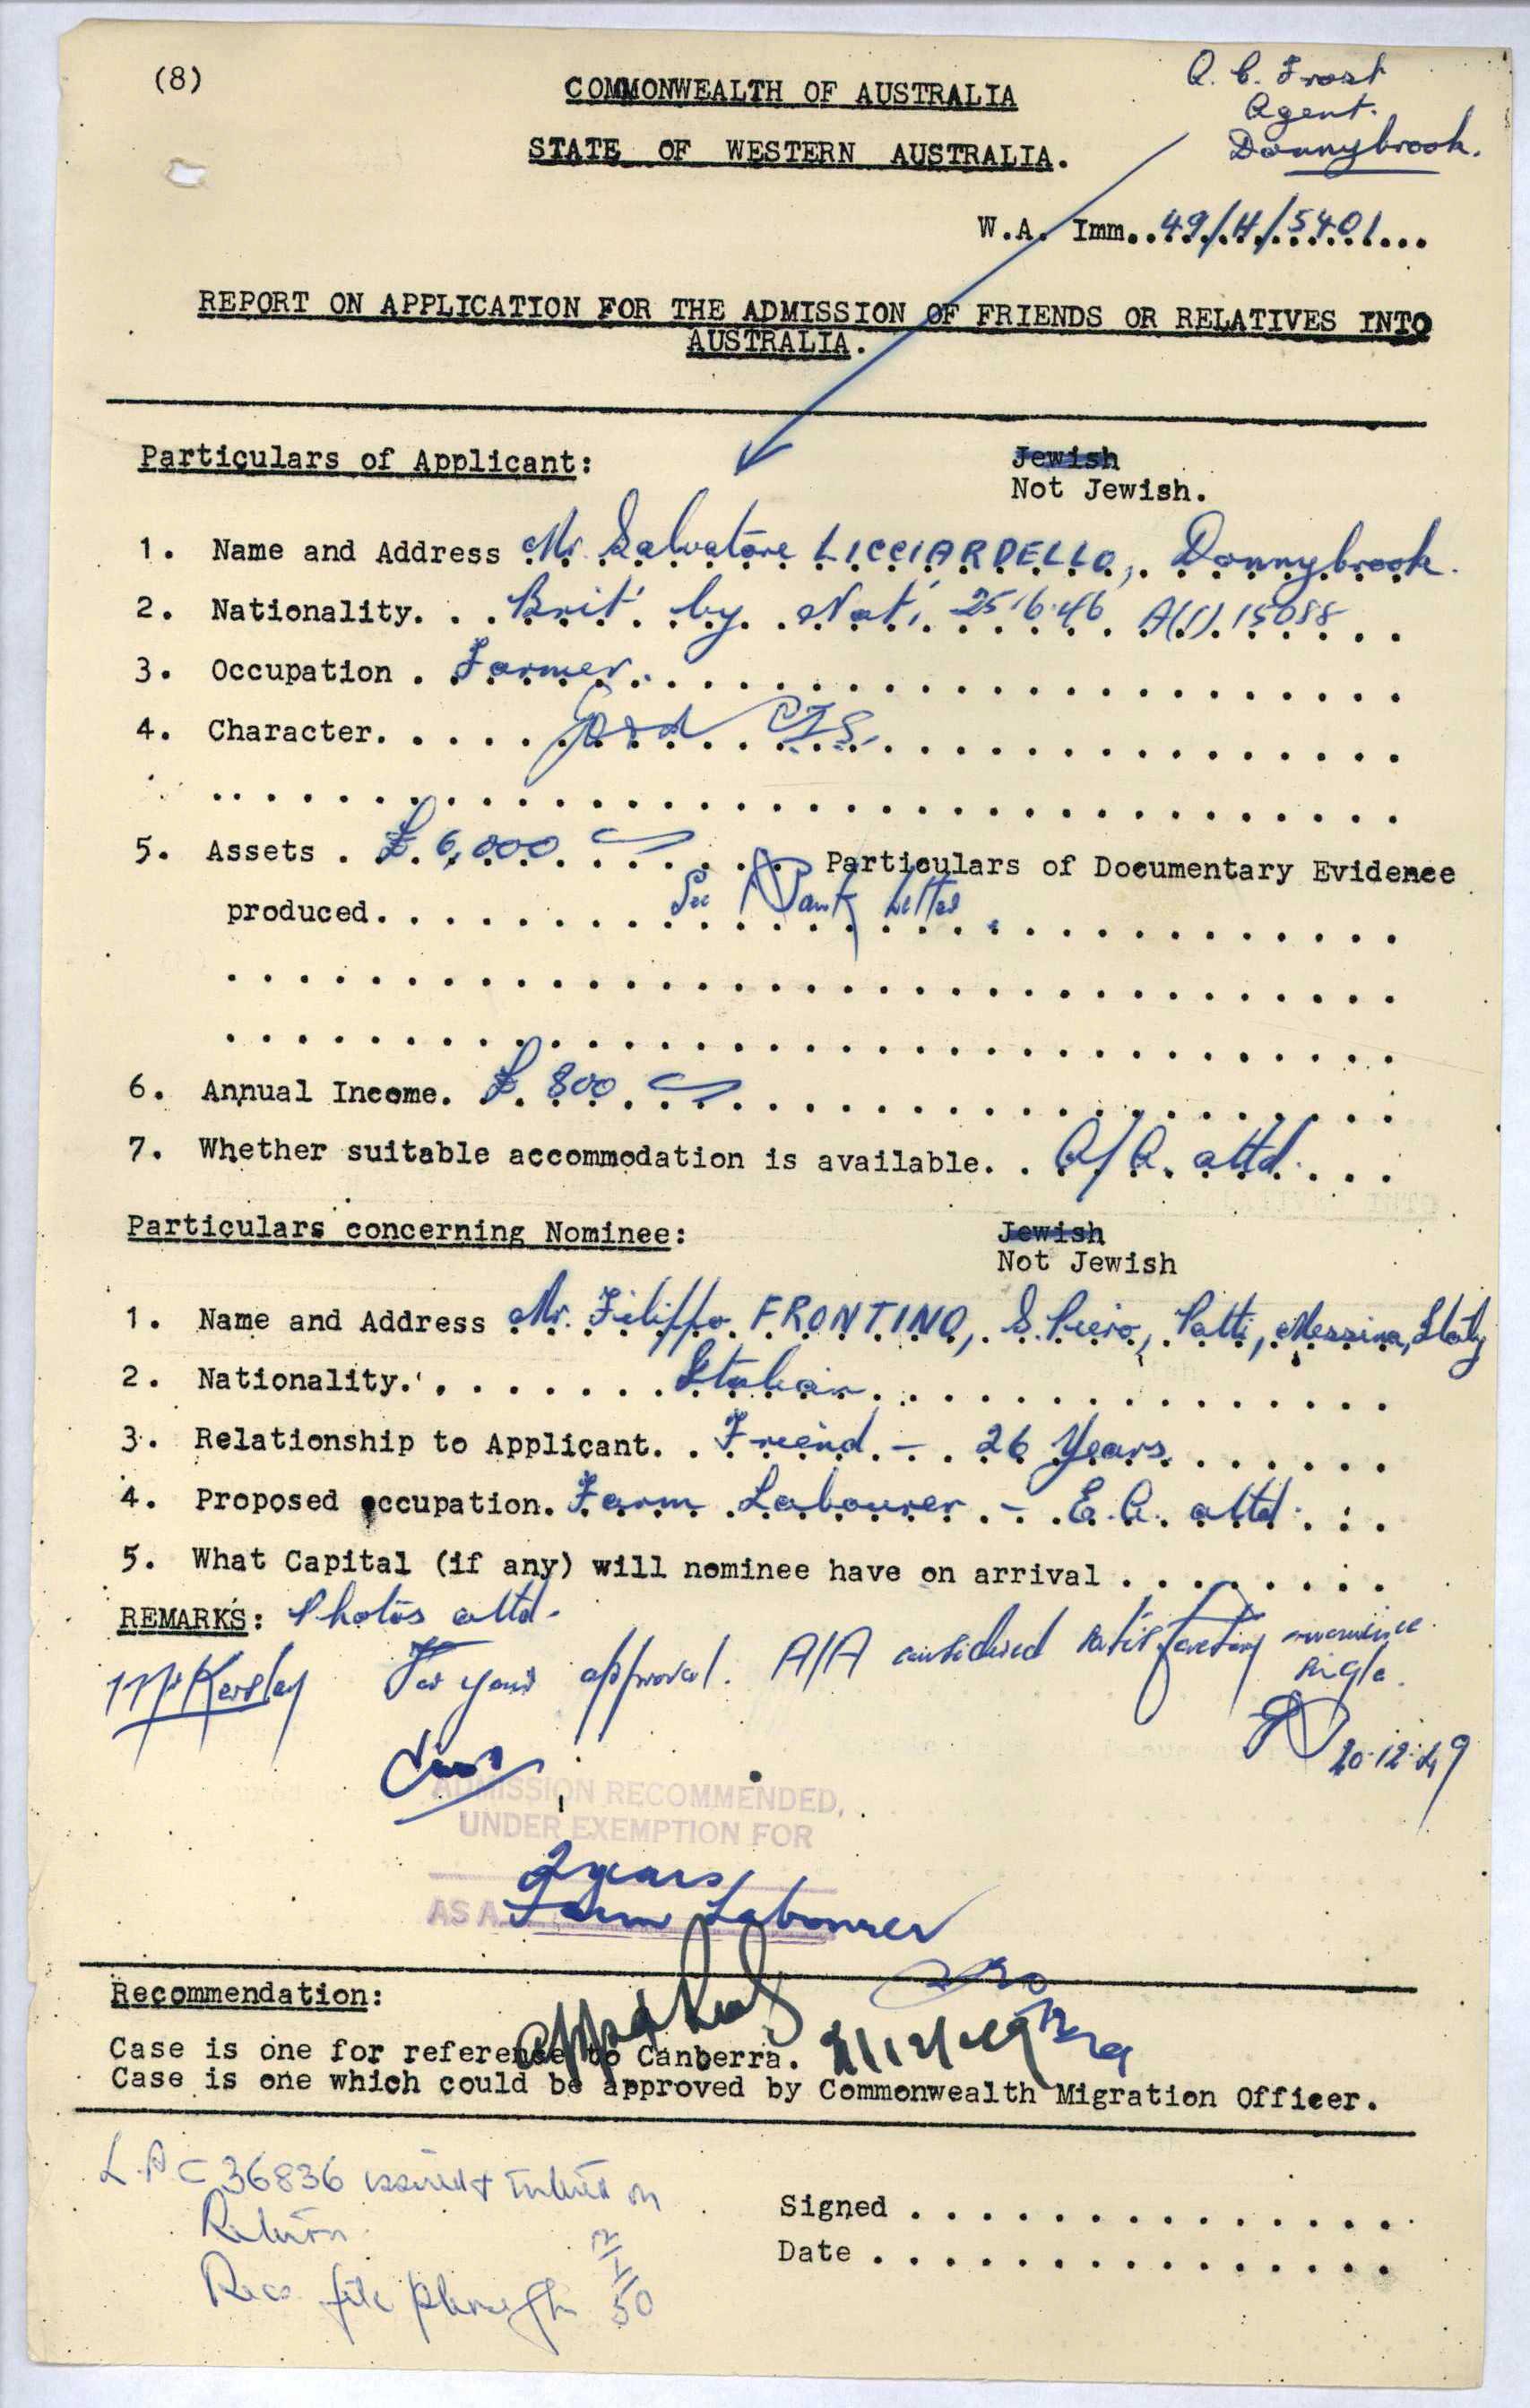 (8)
COMMONWEALTH OF AUSTRALIA
STATE OF WESTERN AUSTRALIA.
Q. C. Frost
Agent.
Donnybrook.
W.A. Imm..49/4/5401...
REPORT ON APPLICATION FOR THE ADMISSION OF FRIENDS OR RELATIVES INTO
AUSTRALIA.
Particulars of Applicant:
Jewish
Not Jewish.
1. Name and Address Mr. Salvatore LICCIARDELLO, Donnybrook.
2. Nationality. . . Brit. by Nat. 25.6.46 A(1). 15088
3. Occupation . Farmer.
4. Character. . . . . Good
5. Assets . £ 6,000 . . . . Particulars of Documentary Evidence
produced. . . . . . . See Bank Letter
6. Annual Income. £ 800
7. Whether suitable accommodation is available. . A/A. attd.
Particulars concerning Nominee:
Jewish
Not Jewish
1. Name and Address Mr. Filippo FRONTINO, S. Piero, Patti, Messina, Italy
2. Nationality. . . . . . . Italian
3. Relationship to Applicant. . Friend - 26 Years
4. Proposed occupation. Farm Labourer - E.A. attd.
5. What Capital (if any) will nominee have on arrival . . . . . . . .
REMARKS: Photos attd.
Mr Kersley For your approval. A/A considered satisfactory
single.
20.12.49
ADMISSION RECOMMENDED,
UNDER EXEMPTION FOR
2 years
AS A Farm Labourer
Recommendation:
Case is one for reference to Canberra. 21/12/49
Case is one which could be approved by Commonwealth Migration Officer.
36836 issued &  on
Return.
Rec. file
2/1/50
Signed . . . . . . . . . . . . . . .
Date . . . . . . . . . . . . . . . .